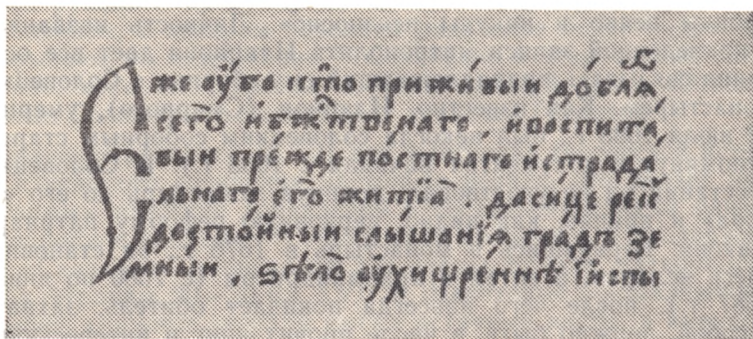 Еже ѹ҆бо и҆сто прижи́выи до́блѧ
сего̀ и҆ бж҃твенаго, и҆ воспита́
выи пре́жде постнаго и҆ страда
льнаго е҆го̀ житїѧ̀. да сице реще
и҆ достойныи слышанїѧ градъ зе
мныи, ѕѣло̀ ѹ҆хищре́ннѣ и҆спы